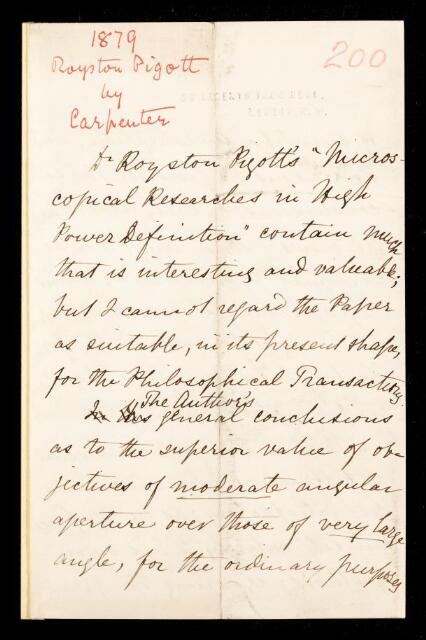 1879
Royston Pigott
by
Carpenter
200
Dr Royston Pigott's "Micros-
copical Researches in High
Power Definition" contain much
that is interesting and valuable;
but I cannot regard the Paper
as suitable, in its present shape,
for the Philosophical Transactions
In The Author's general conclusions
as to the superior value of ob-
jectives of moderate angular
aperture over those of very large
angle, for the ordinary purposes